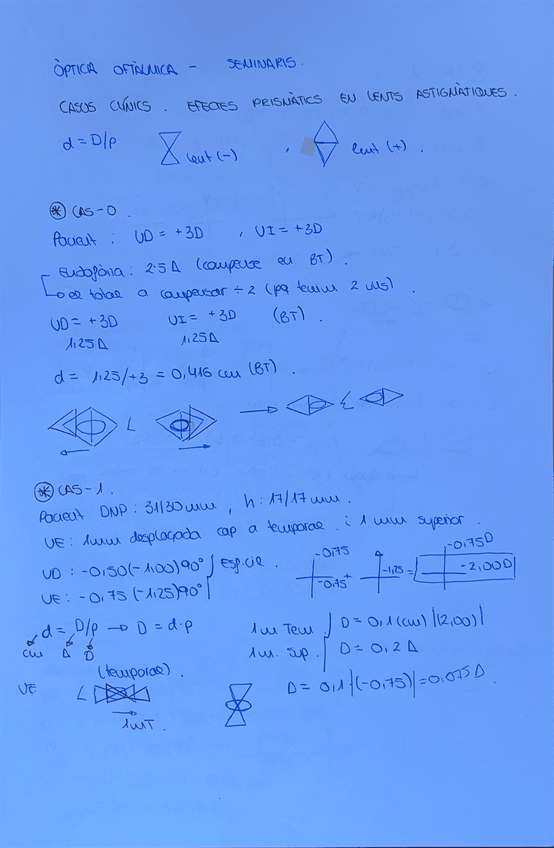 ÒPTICA OFTÀLMICA - SEMINARIS.
CASOS CLÍNICS. EFECTES PRISMÀTICS EN LENTS ASTIGMÀTIQUES.
d = D/p lent (-) , lent (+).
* CAS-0.
Pacient: UD = +3D , UI = +3D
Endofòria: 2.5Δ (compensa en BT).
el total a compensar ÷ 2 (pq tenim 2 ulls).
UD = +3D UI = +3D (BT).
1,25Δ 1,25Δ
d = 1,25/+3 = 0,416 cm (BT).
* CAS-1.
Pacient DNP: 31/30 mm, h: 17/17 mm.
UE: 1mm desplaçada cap a temporal i 1 mm superior.
UD: -0,50 (-1,00) 90°
UE: -0,75 (-1,25) 90°
-0,75
-0,75 + -1,25 =
-0,75D
-2,00D
d = D/p → D = d·p
cm Δ D
1m Tem D = 0,1 (cm) |(2,00)|
1m. Sup. D = 0,2 Δ
(temporal).
UE
1mT.
D = 0,1 |(-0,75)| = 0,075Δ.